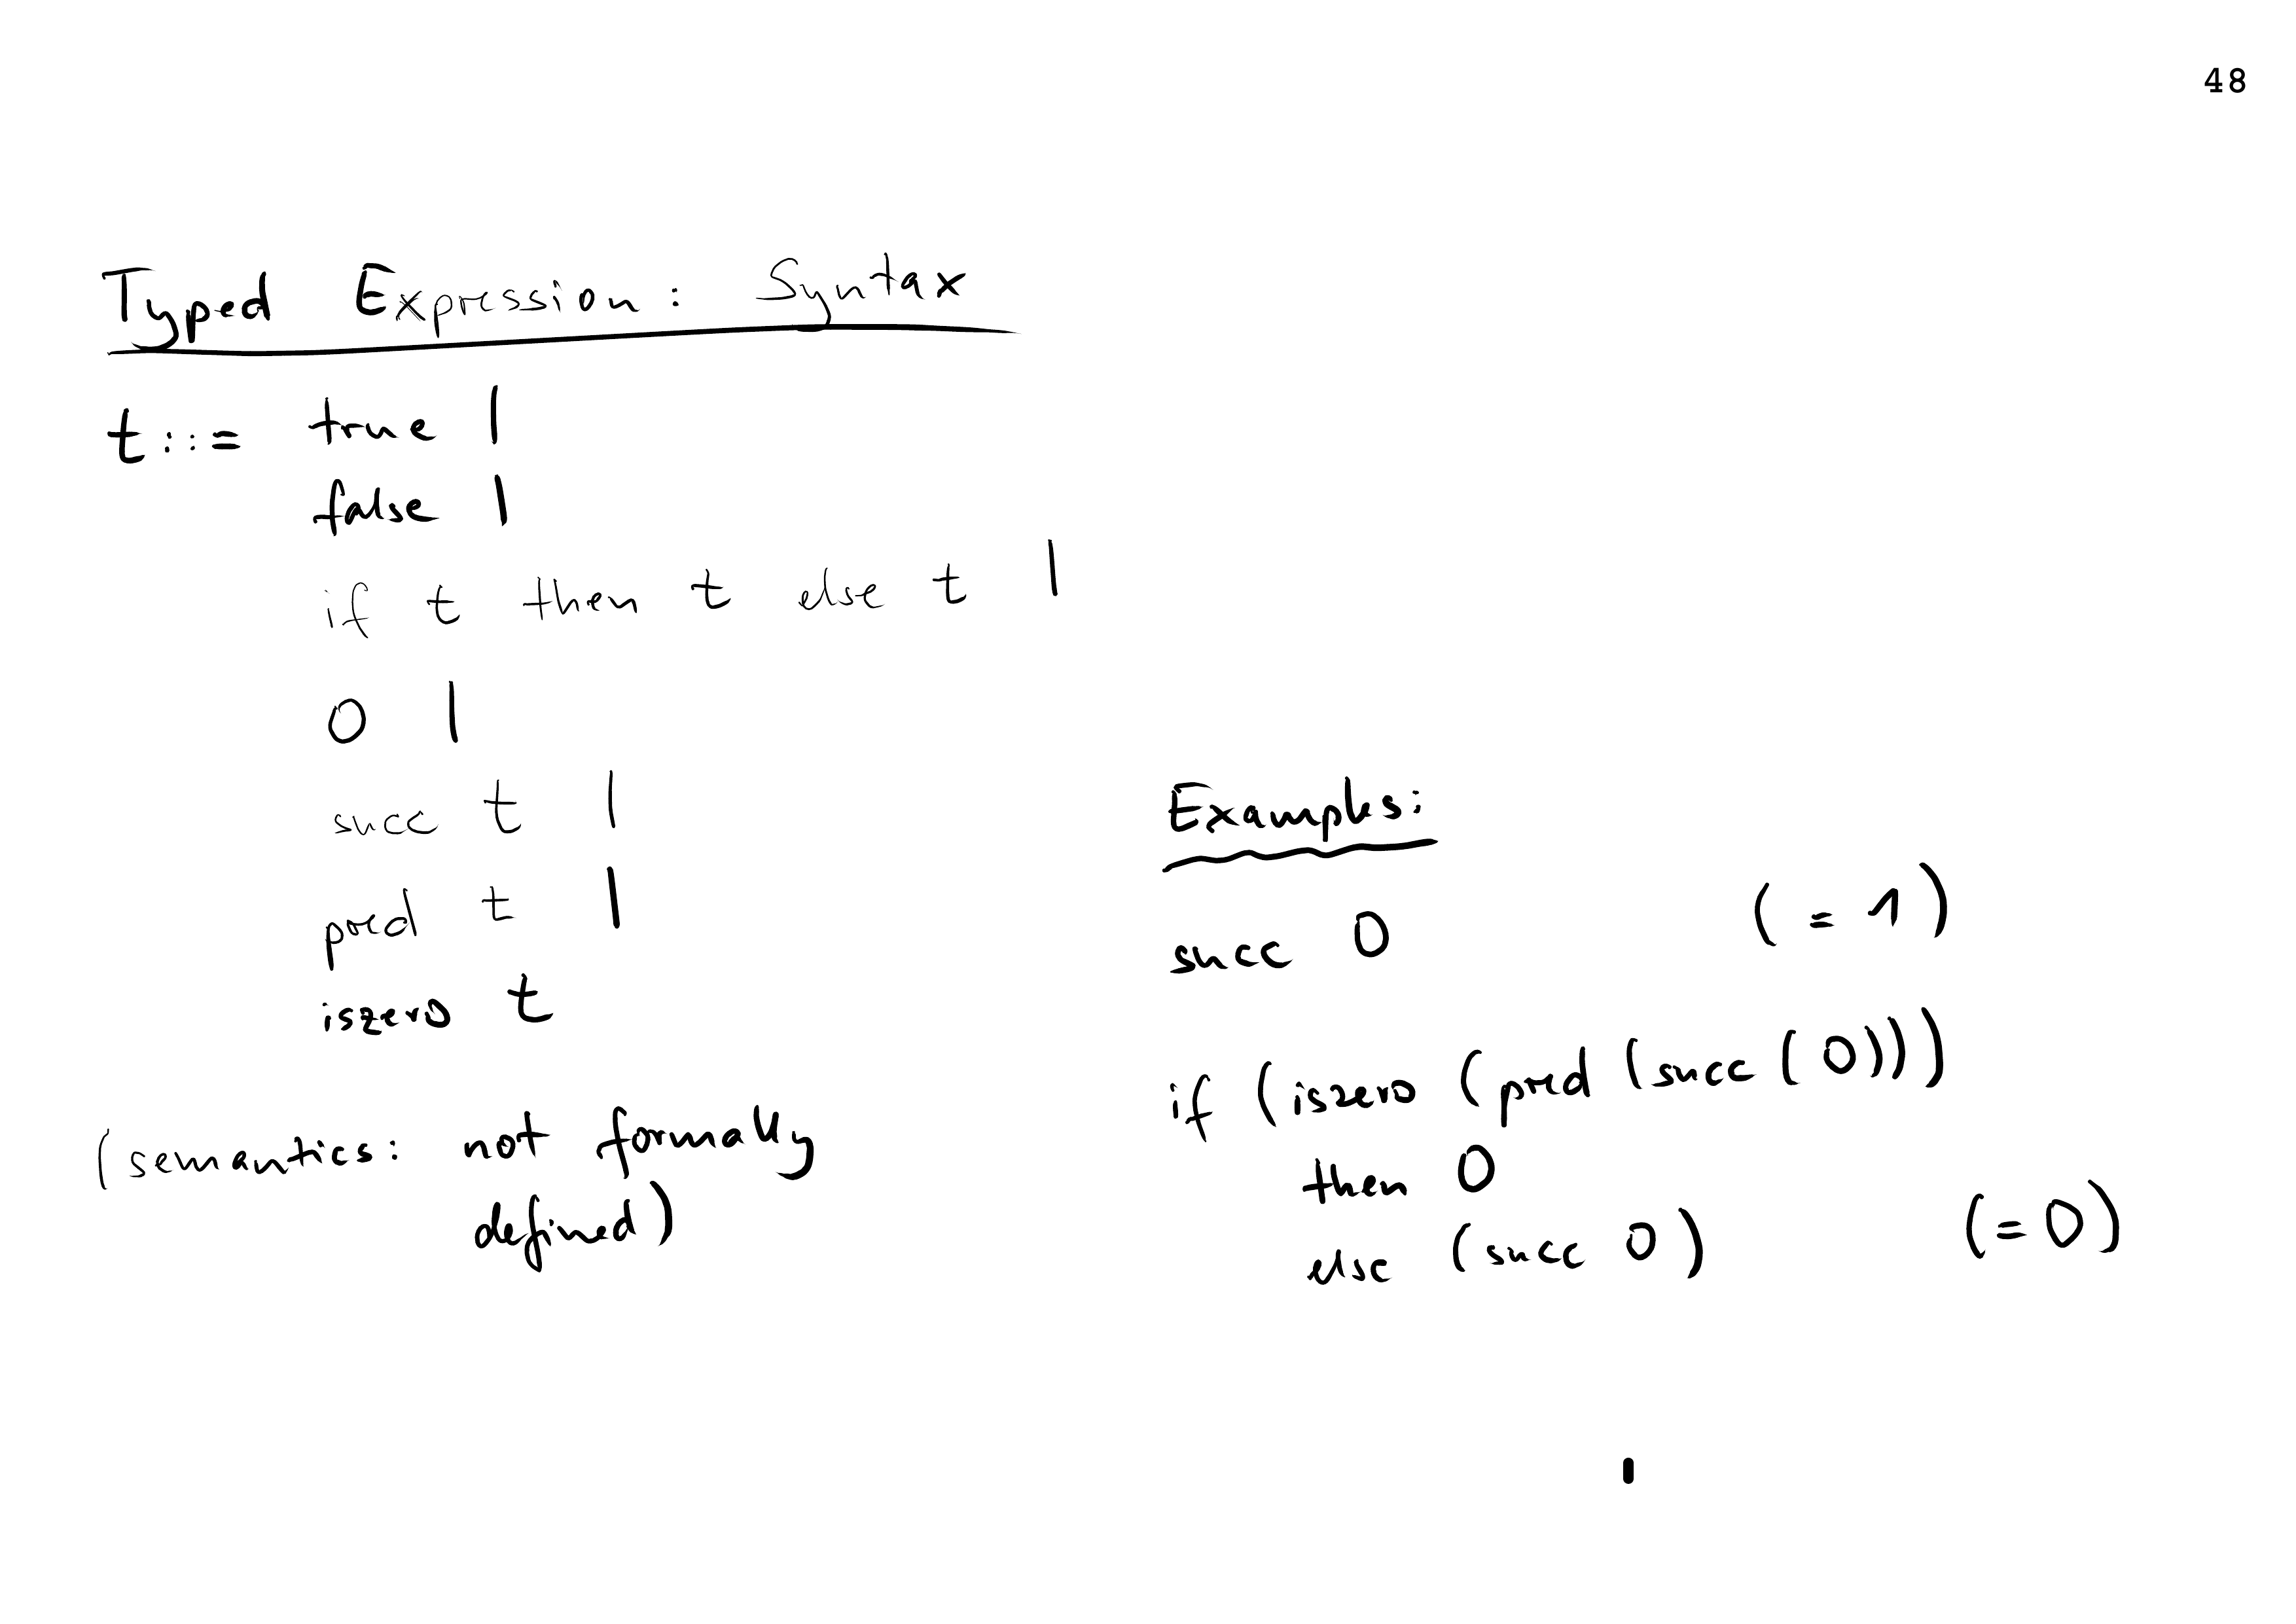 48
Typed Expression: Syntax
t ::= true |
false |
if t then t else t |
0 |
succ t |
pred t |
iszero t
(semantics: not formally
defined)
Examples:
succ 0 (= 1)
if (iszero (pred (succ (0))))
then 0
else (succ 0) (= 0)